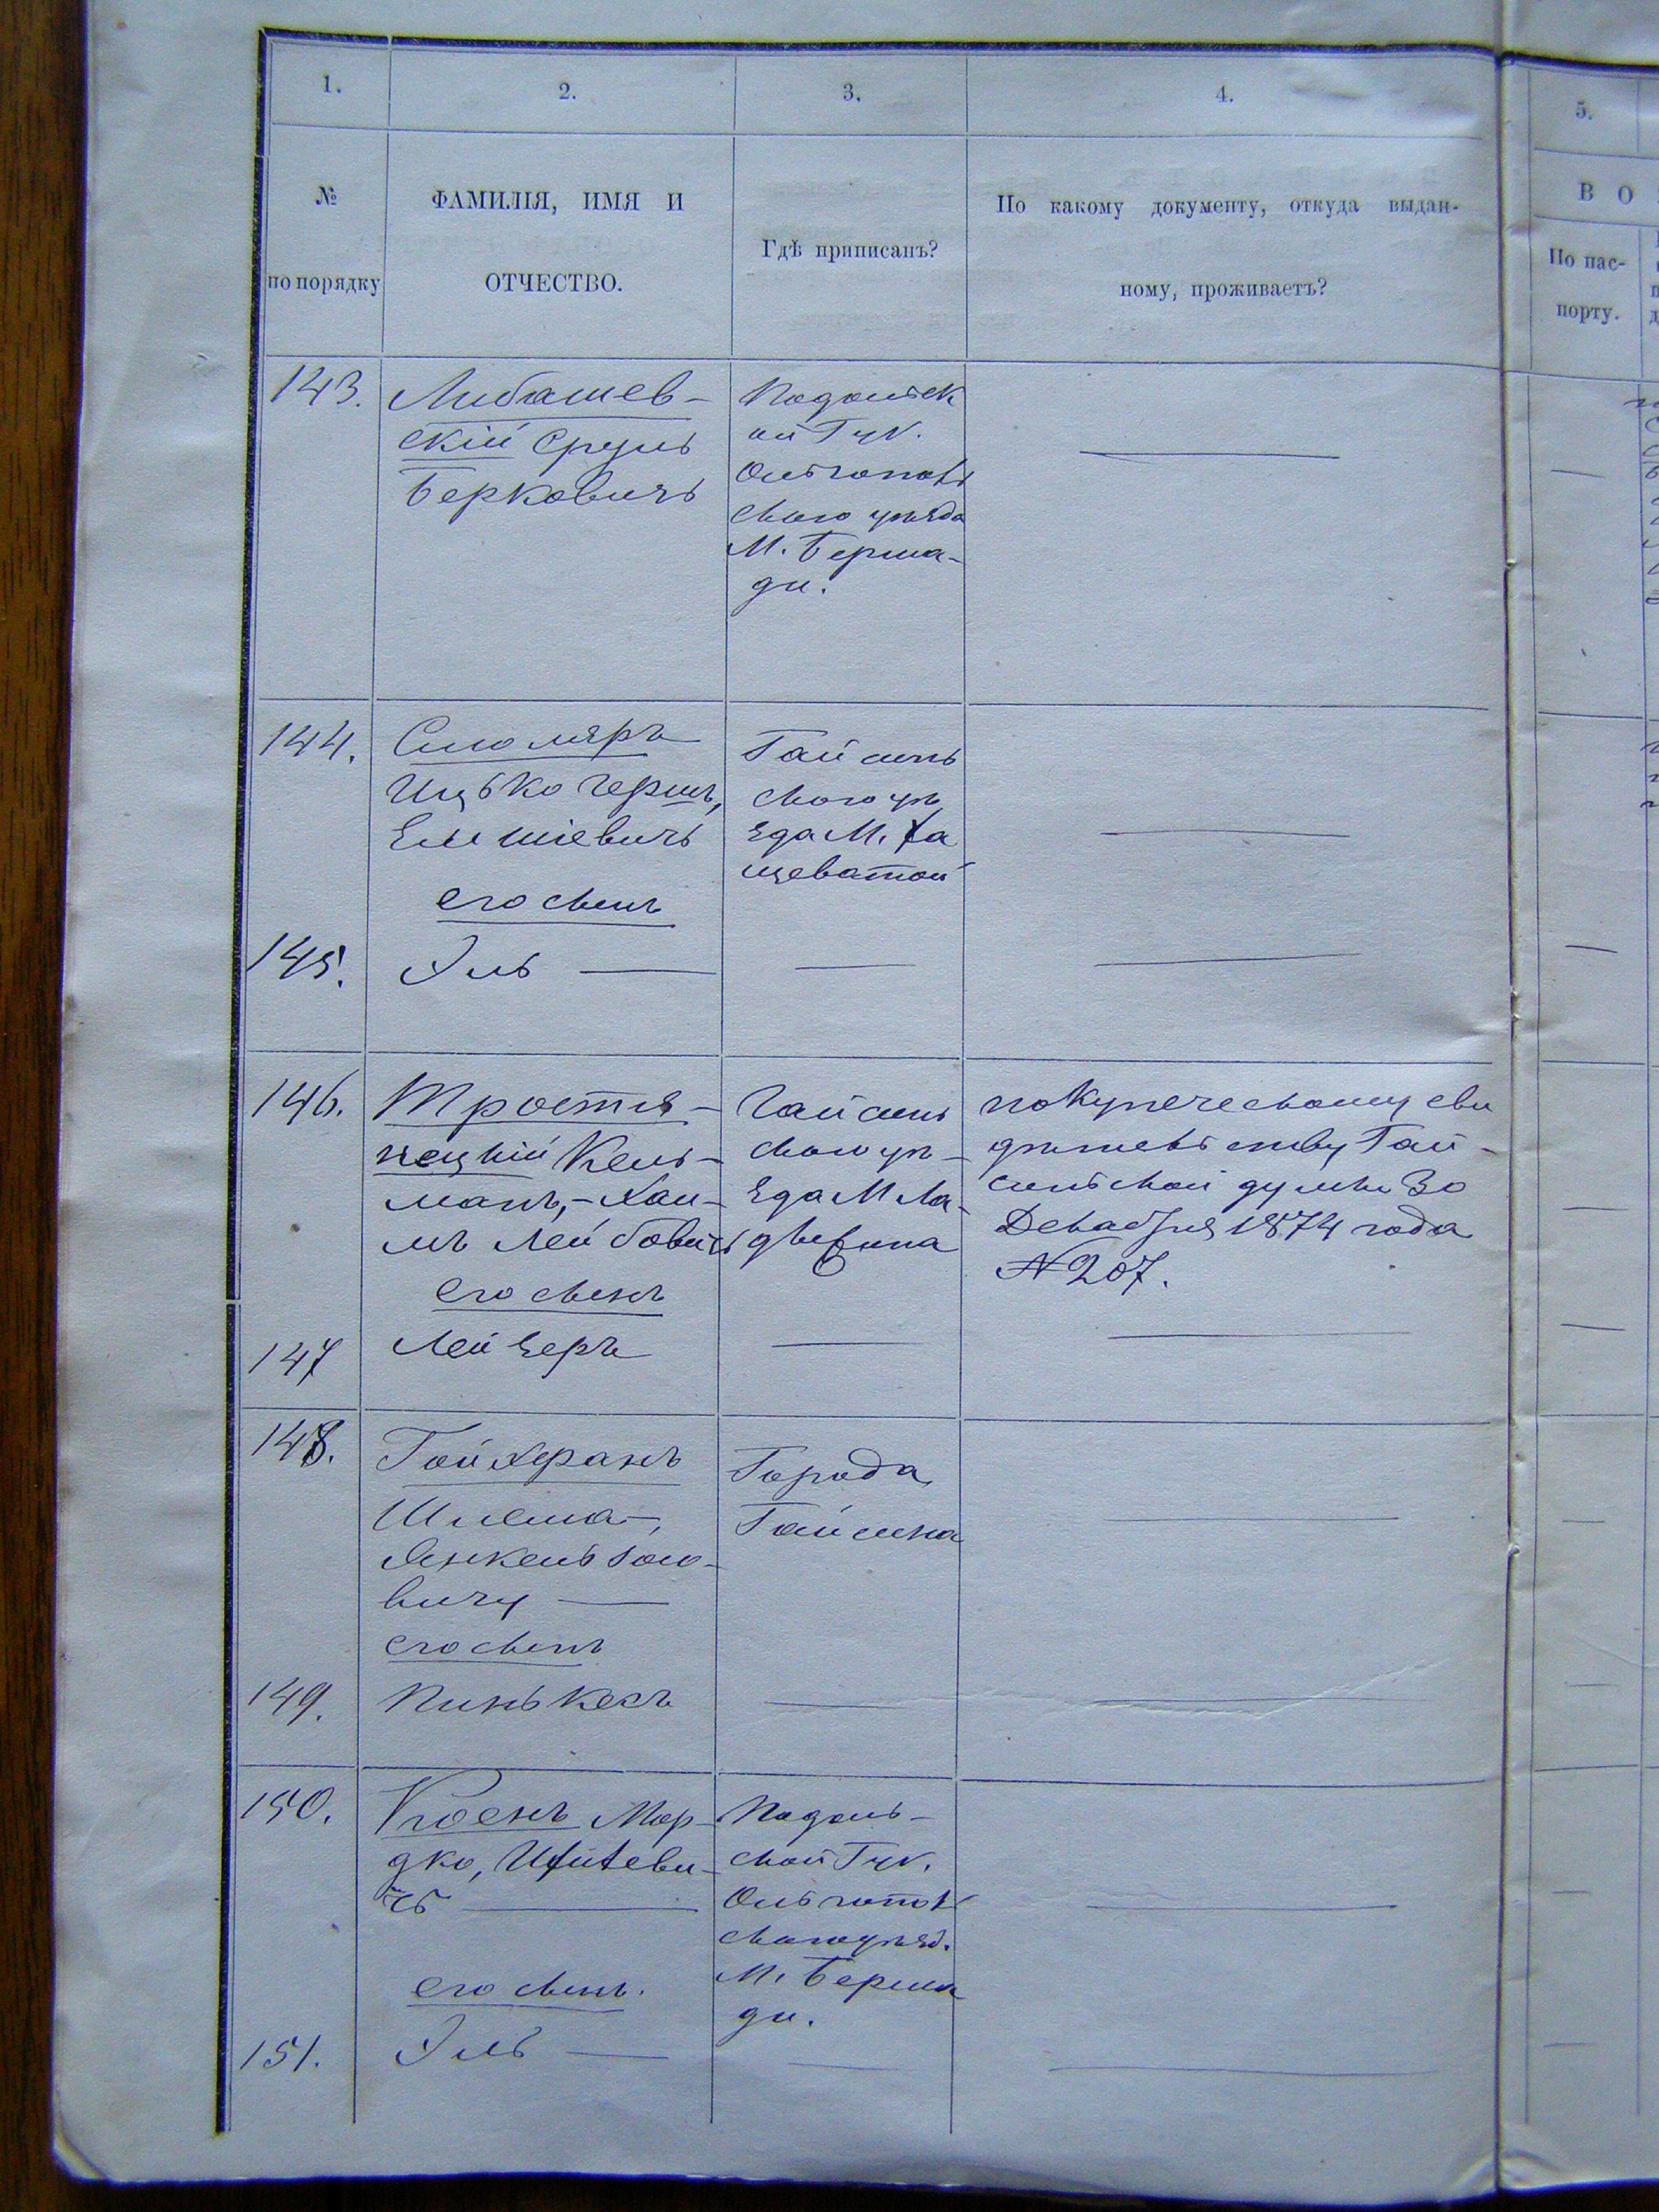 1.
2.
3.
4.
5.
№
по порядку
ФАМИЛІЯ, ИМЯ И
ОТЧЕСТВО.
Гдѣ приписанъ?
По какому документу, откуда выдан-
ному, проживаетъ?
В О
По пас-
порту.
143.
Либашев-
скій Сруль
Берковичъ
Подольск
ой Губ.
Ольгополь
скаго уѣзда
М. Берша-
ди.
144.
Столяръ
Ицько Гершъ,
Елишіевичъ
его сынъ
Гайсинь
скаго уѣ
зда М. Ха
щеватой
145.
Эль
146.
Тростя-
нецкій Кель-
манъ,-Хаи-
мъ Лейбовичъ
его сынъ
Гайсинь
скаго уѣ-
зда М Ла-
дыжина
по купеческому сви
дѣтельству Гай-
синской думы 30
Декабря 1874 года
№ 207.
147
Лейзеръ
148.
Шлема-,
вичу
его сынъ
Города
Гайсина
149.
Пинькасъ
150.
Коенъ Мор-
дко,
чъ
его сынъ.
Подоль-
ской Губ.
Ольгопол
скаго уѣзд.
М. Берша
ди.
151.
Эль